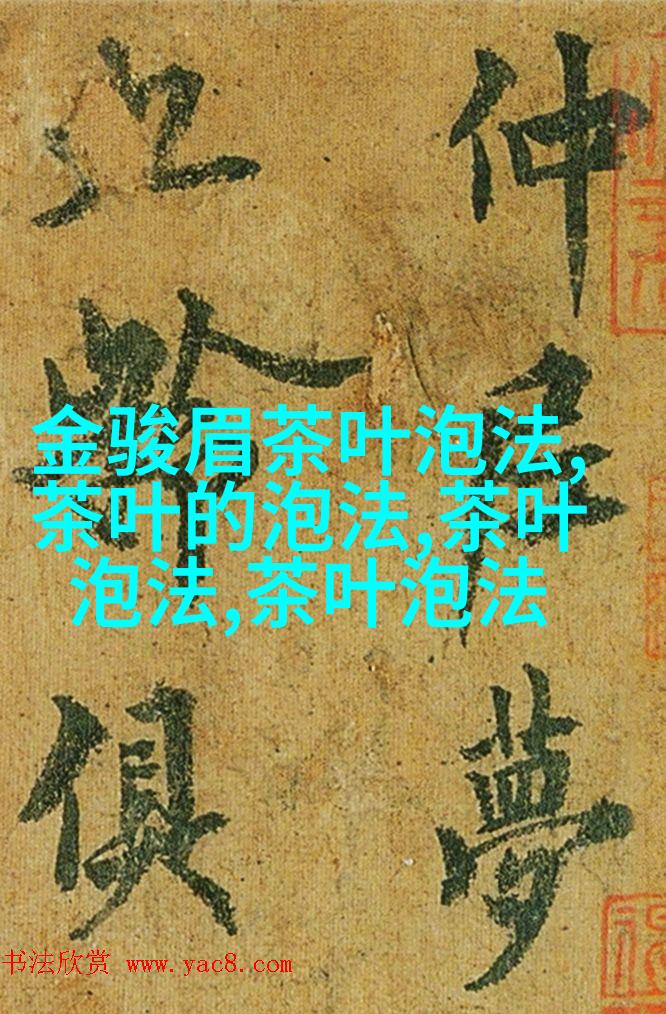 仲尼夢
齡俱
金骏眉茶叶泡法,
茶叶的泡法,茶叶
泡法,茶叶泡法
书法欣赏 www.yac8.com